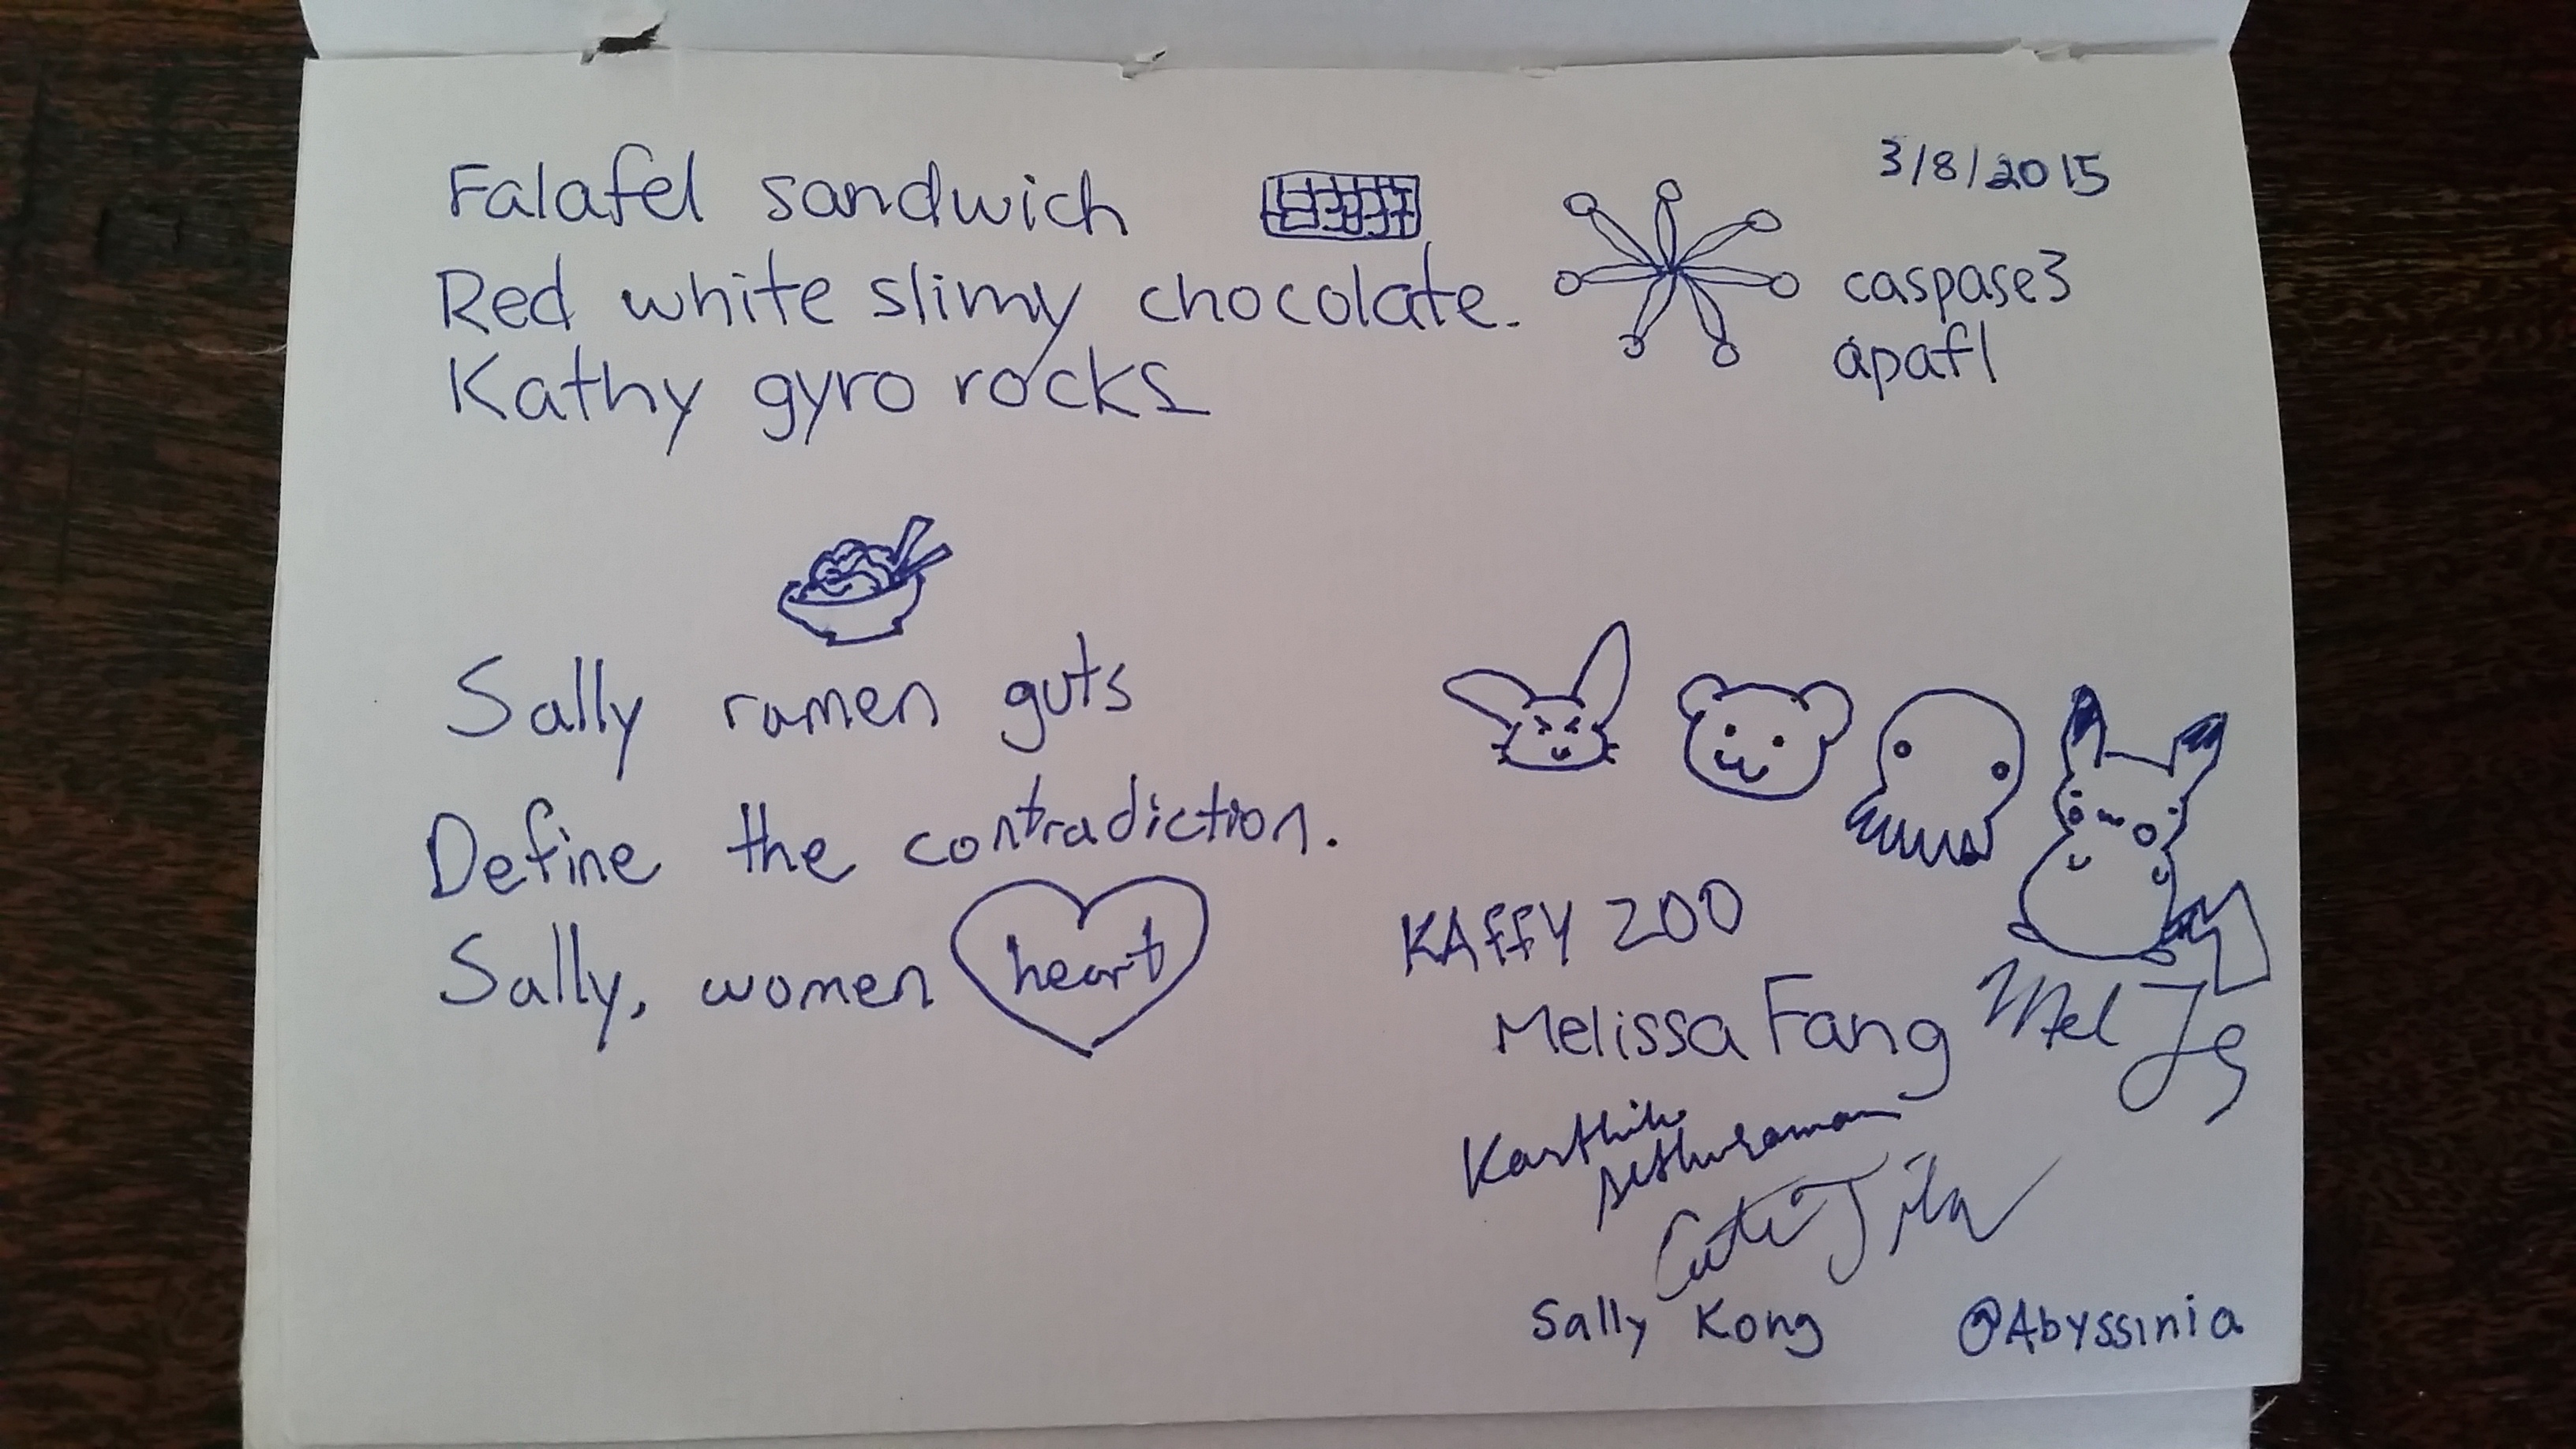 3/8/2015
Falafel sandwich
Red white slimy chocolate.
Kathy gyro rocks
caspase3
apaf1
Sally ramen guts
Define the contradiction.
Sally, women heart
KAffY ZOO
Melissa Fang Mel
Karthik
sethuraman
Sally Kong @Abyssinia